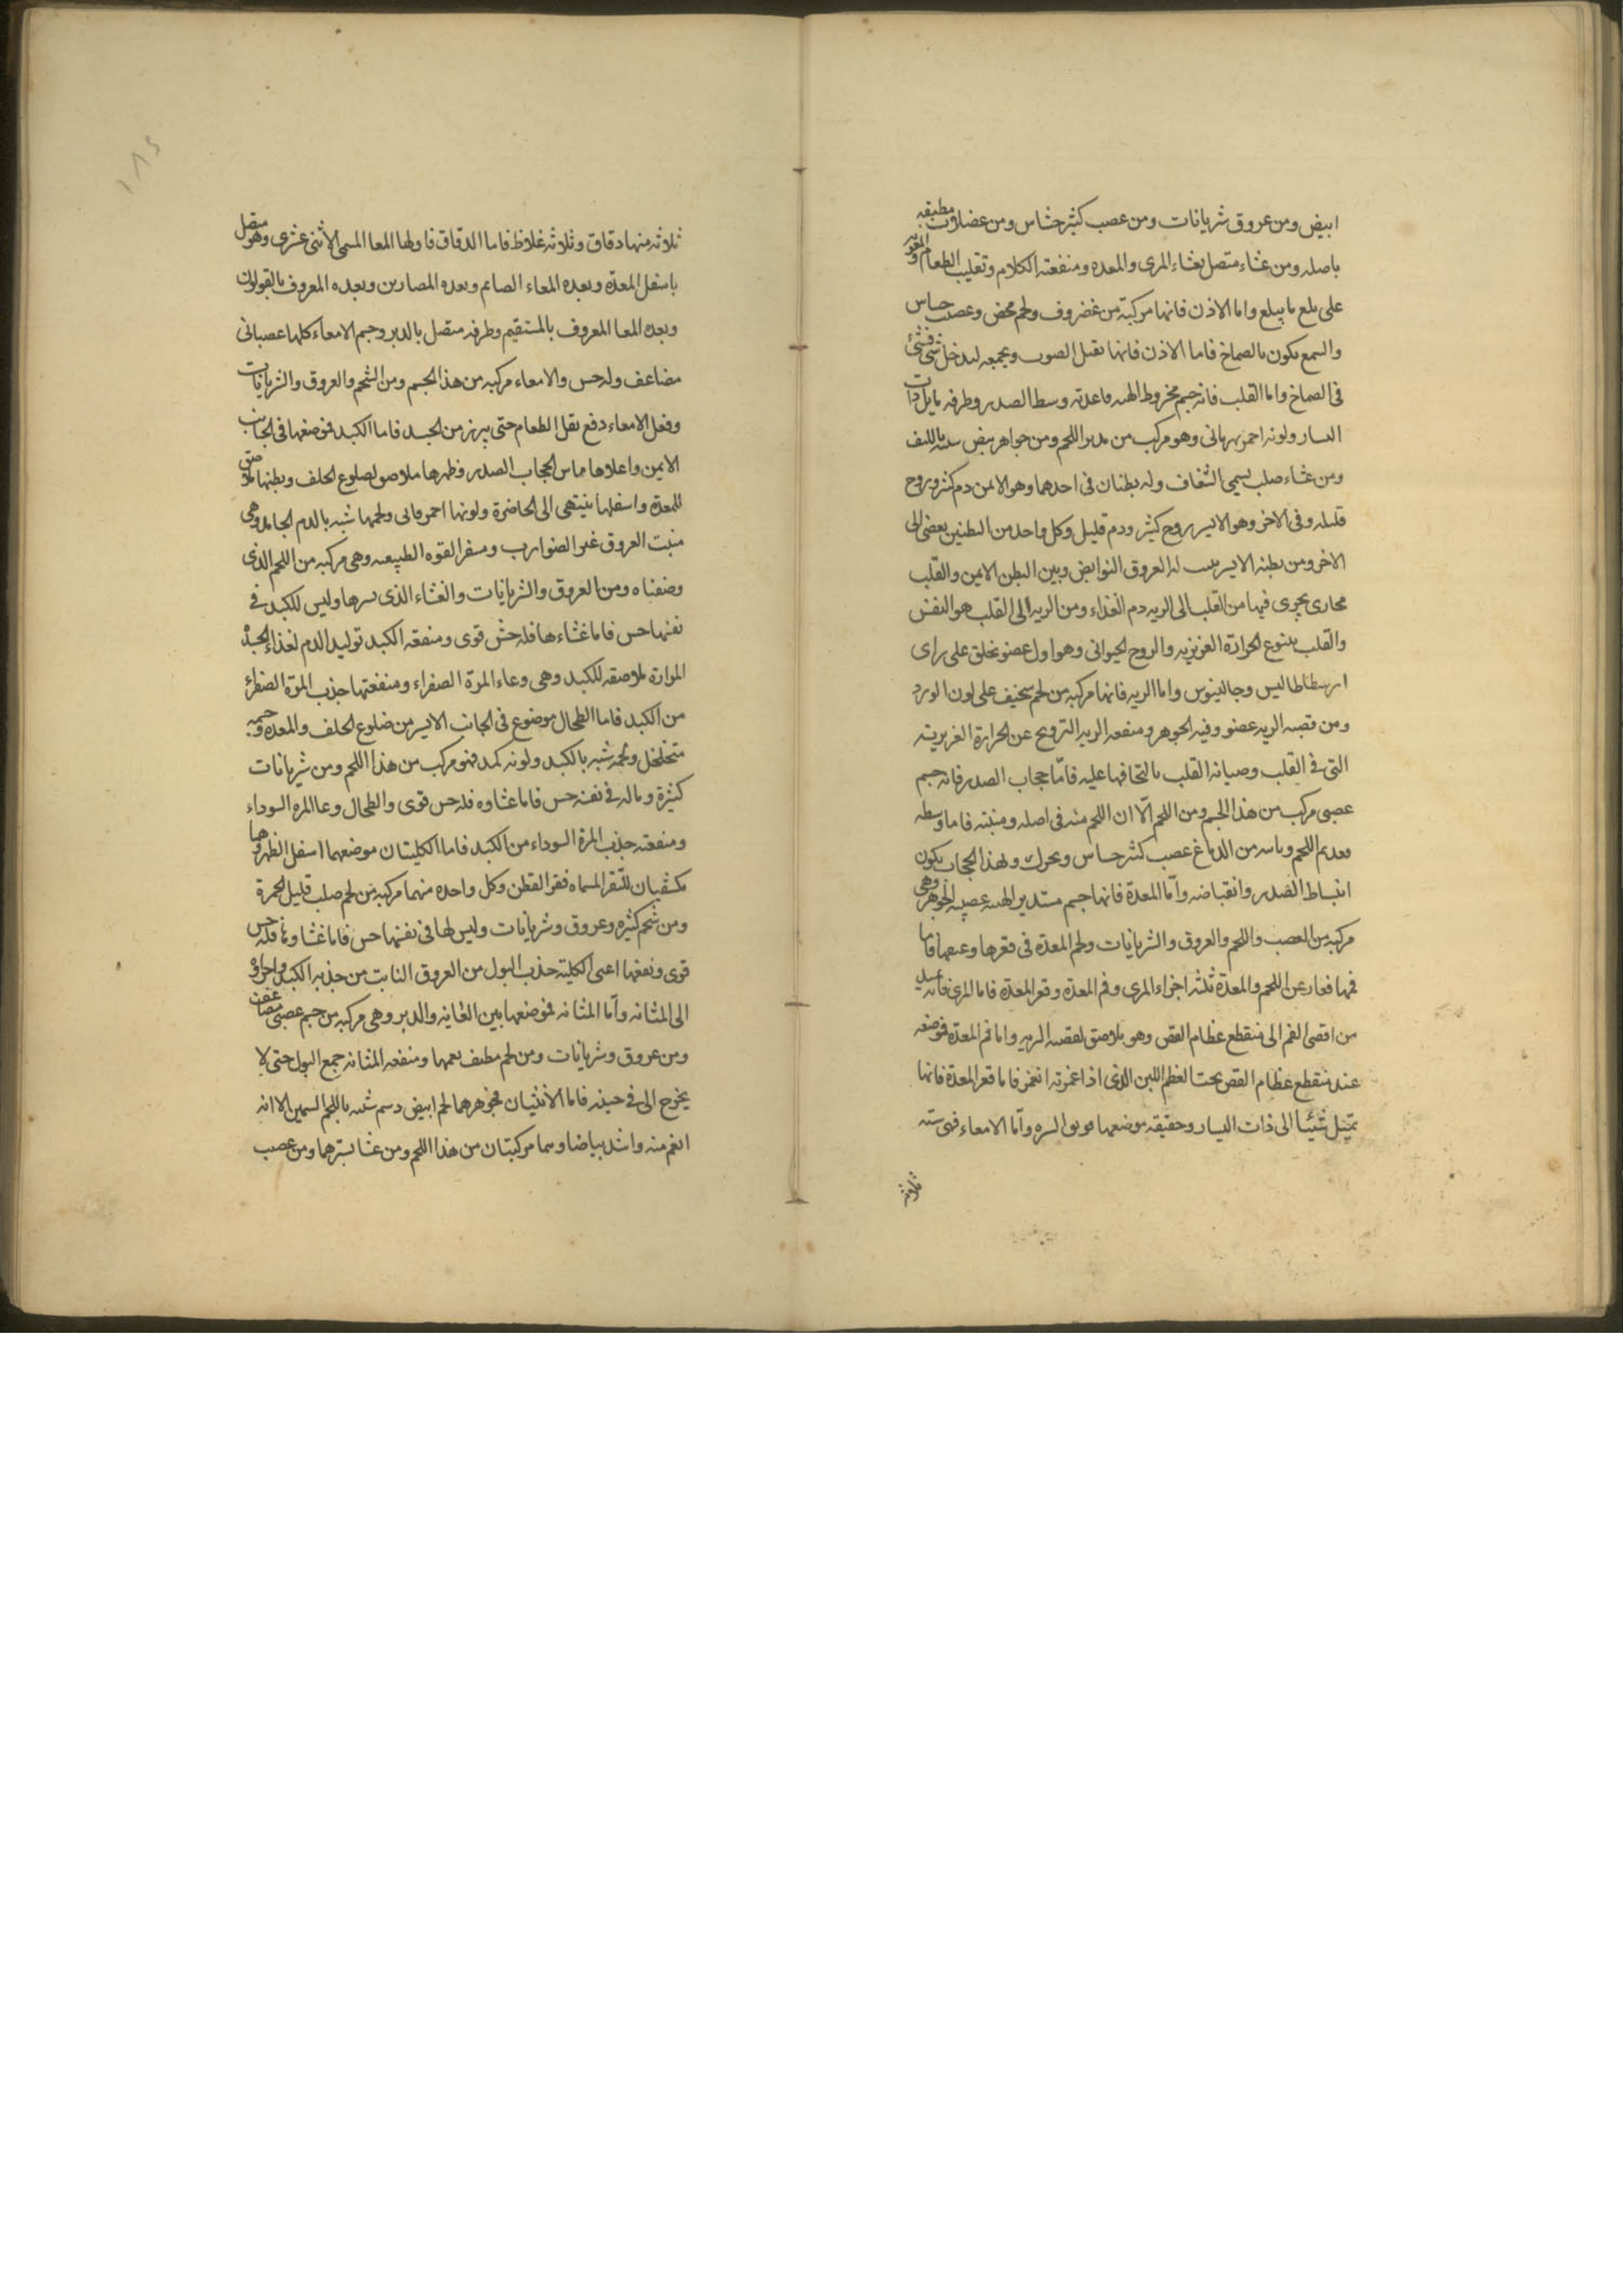 ابيض ومن عروق شريانات ومن عصب كثير حساس ومن عضلات مطيفه
باصله ومن غشاء متصل بغشاء المرى والمعده ومنفعته الكلام وتقليب الطعام والمعونه
على بلع ما يبلع واما الاذن فانها مركبة من غضروف ولحم محض وعصب حساس
والسمع يكون بالصماخ فاما الاذن فانها تقبل الصوت ويجمعه ليدخل شى فشى
فى الصماخ واما القلب فانه جسم مخروط الهيه قاعدته وسط الصدر وطرفه مايل ذات
اليسار ولونه احمر رمانى وهو مركب من اللحم ومن جواهر بيض شبيه بالليف
ومن غشاء صلب يسمى الشغاف وله بطنان فى احدهما وهو الايمن دم كثير وروح
قليله وفى الاخر وهو الايسر روح كثير ودم قليل وكل واحد من البطنين يفضى الى
الاخر ومن بطنه الايسر ينبت له العروق النوابض وبين البطن الايمن والقلب
مجارى يجرى فيها من القلب الى الريه دم الغذاء ومن الريه الى القلب هو النفس
والقلب ينبوع الحرارة الغريزيه والروح الحيوانى وهو اول عضو يخلق على راى
ارسطاطاليس وجالينوس واما الريه فانها مركبه من لحم سخيف على لون الورد
ومن قصبه الريه عضو وفيه الجوهر ومنفعه الريه الترويح عن الحرارة الغريزيته
التى فى القلب وصيانه القلب بالتحافها عليه فامّا حجاب الصدر فانه جسم
عصبى مركب من هذا الجسم ومن اللحم الّا ان اللحم منه فى اصله ومنبته فاما وسطه
فعديم اللحم وياتيه من الدماغ عصب كثير حساس ويحرك ولهذا الحجاب يكون
انبساط الصدر وانقباضه وامّا المعدة فانها جسم مستدير الهيه عصبيه الجوهر وهى
مركبه من العصب واللحم والعروق والشريانات ولحم المعدة فى قعرها وعنقها فاما
فمها فعار عن اللحم والمعدة ثلثه اجزاء المرى وفم المعدة وقعر المعدة فاما المرى فانه
من اقصى الفم الى منقطع عظام القص وهو ملاصق لقصبه الريه واما فم المعدة فموضعه
عند منقطع عظام القص تحت العظم اللين الذى اذا غمزته انغمز فاما قعر المعدة فانها
تميل شيئا الى ذات اليسار وحقيقه موضعها فوق السره وامّا الامعاء فهى سته
ثلاثه
ثلاثه منها دقاق وثلاثه غلاظ فاما الدقاق فاولها المعا المسمى الاثنى عشرى وهو متصل
باسفل المعدة وبعده المعاء الصايم وبعده المصارين وبعده المعروف بالقولون
وبعده المعا المعروف بالمستقيم وطرفه متصل بالدبر وجسم الامعاء كلها عصبانى
مضاعف وله حس والامعاء مركبه من هذا الجسم ومن الشحم والعروق والشريانات
وفعل الامعاء دفع ثفل الطعام حتى يبرز من الجسد فاما الكبد فموضعها فى الجانب
الايمن واعلاها مماس لحجاب الصدر وظهرها ملاصق لضلوع الخلف وبطنها ملاصق
للمعدة واسفلها ينتهى الى الخاصرة ولونها احمر قانى ولحمها شبه بالدم الجامد وهى
منبت العروق غير الضوارب ومستقر القوه الطبيعيه وهى مركبه من اللحم الذى
وصفناه ومن العروق والشريانات والغشاء الذى يسترها وليس للكبد فى
نفسها حس فاما غشاءها فله حسّ قوى ومنفعه الكبد توليد الدم لغذاء الجسد
المرارة ملاصقه للكبد وهى وعاء المرة الصفراء ومنفعتها جذب المرّة الصفراء
من الكبد فاما الطحال موضوع فى الجانب الايسر من ضلوع الخلف والمعدة وجسمه
متخلخل ولحمه شبه بالكبد ولونه كمد فهو مركب من هذا اللحم ومن شريانات
كثيرة وماله فى نفسه حس فاما غشاوه فله حس قوى والطحال وعا المره السوداء
ومنفعته جذب المرة السوداء من الكبد فاما الكليتان موضعهما اسفل الظهر وهما
مكتنفان للفقر المسماه فقر القطن وكل واحده منهما مركبه من لحم صلب قليل الحمرة
ومن شحم كثيره وعروق وشريانات وليس لها فى نفسها حس فاما غشاوها فله حس
قوى ونفعها اعنى الكليته جذب البول من العروق النابت من حذبه الكبد واجراه
الى المثانه وامّا المثانه فموضعها بين العانه والدبر وهى مركبه من جسم عصبى مضاعف
ومن عروق وشريانات ومن لحم مطيف بعمقها ومنفعه المثانه جمع البول حتى لا
يخرج الى فى حينه فاما الانثيان فجوهرهما لحم ابيض دسم شبه باللحم السمين الا انه
انعم منه واشد بياضا وهما مركبتان من هذا اللحم ومن غشا يسترهما ومن عصب